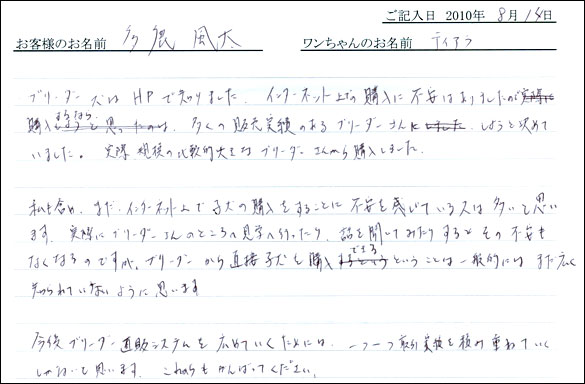 ご記入日 2010年 8月 14日
お客様のお名前 多良 風太 ワンちゃんのお名前 ティアラ
ブリーダーズは HPで知りました。インターネット上での購入に不安はありましたが実際に
購入するなら、多くの販売実績のあるブリーダーさんにしようと決めて
いました。実際規模の比較的大きなブリーダーさんから購入しました。
私も含め、まだインターネット上で子犬の購入をすることに不安を感じている人は多いと思い
ます。実際にブリーダーさんのところへ見学へ行ったり、話を聞いてみたりするとその不安も
なくなるのですが、ブリーダーから直接子犬を購入できるということは一般的にはまだ広く
知られていないように思います
今後ブリーダー直販システムを広めていくためには、一つ一つ取引実績を積み重ねていく
しかないと思います。これからもがんばってください。